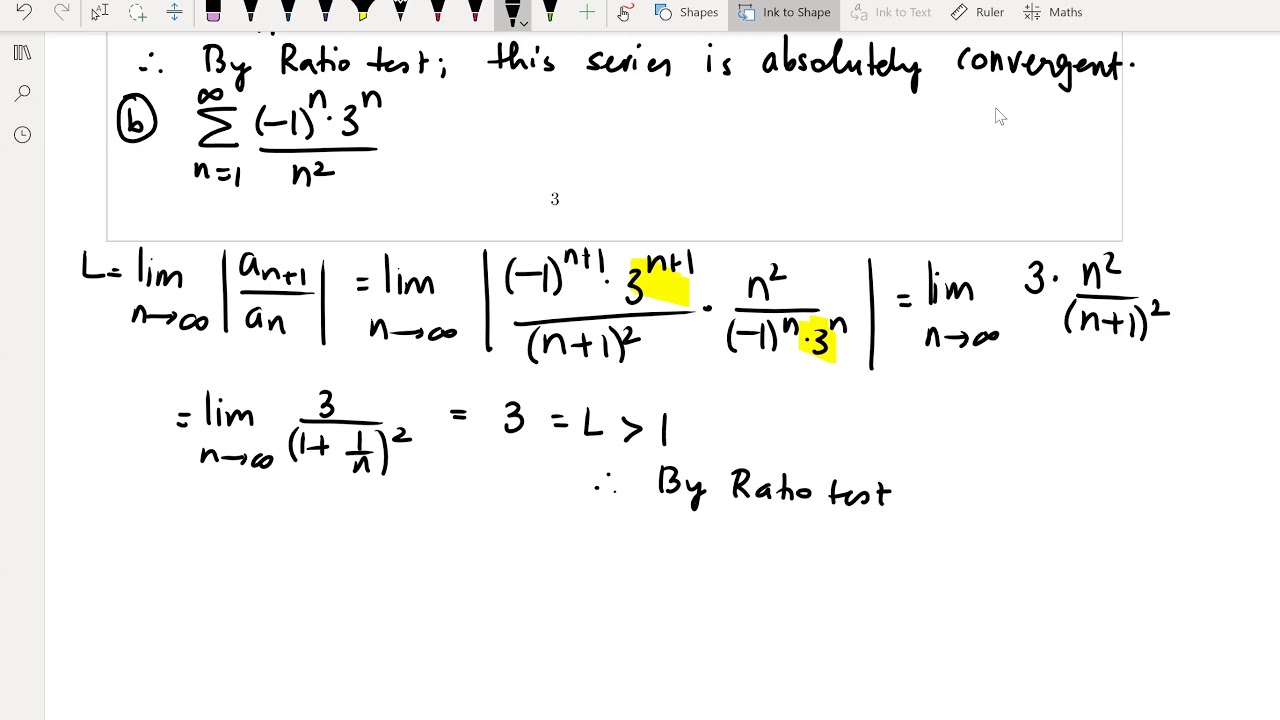 Shapes Ink to Shape Ink to Text Ruler Maths
∴ By Ratio test; this series is absolutely convergent.
(b) ∑_{n=1}^{∞} \frac{(-1)^n · 3^n}{n^2}
3
L = lim_{n→∞} |\frac{a_{n+1}}{a_n}| = lim_{n→∞} |\frac{(-1)^{n+1} · 3^{n+1}}{(n+1)^2} · \frac{n^2}{(-1)^n · 3^n}| = lim_{n→∞} 3 · \frac{n^2}{(n+1)^2}
= lim_{n→∞} \frac{3}{(1 + \frac{1}{n})^2} = 3 = L > 1
∴ By Ratio test